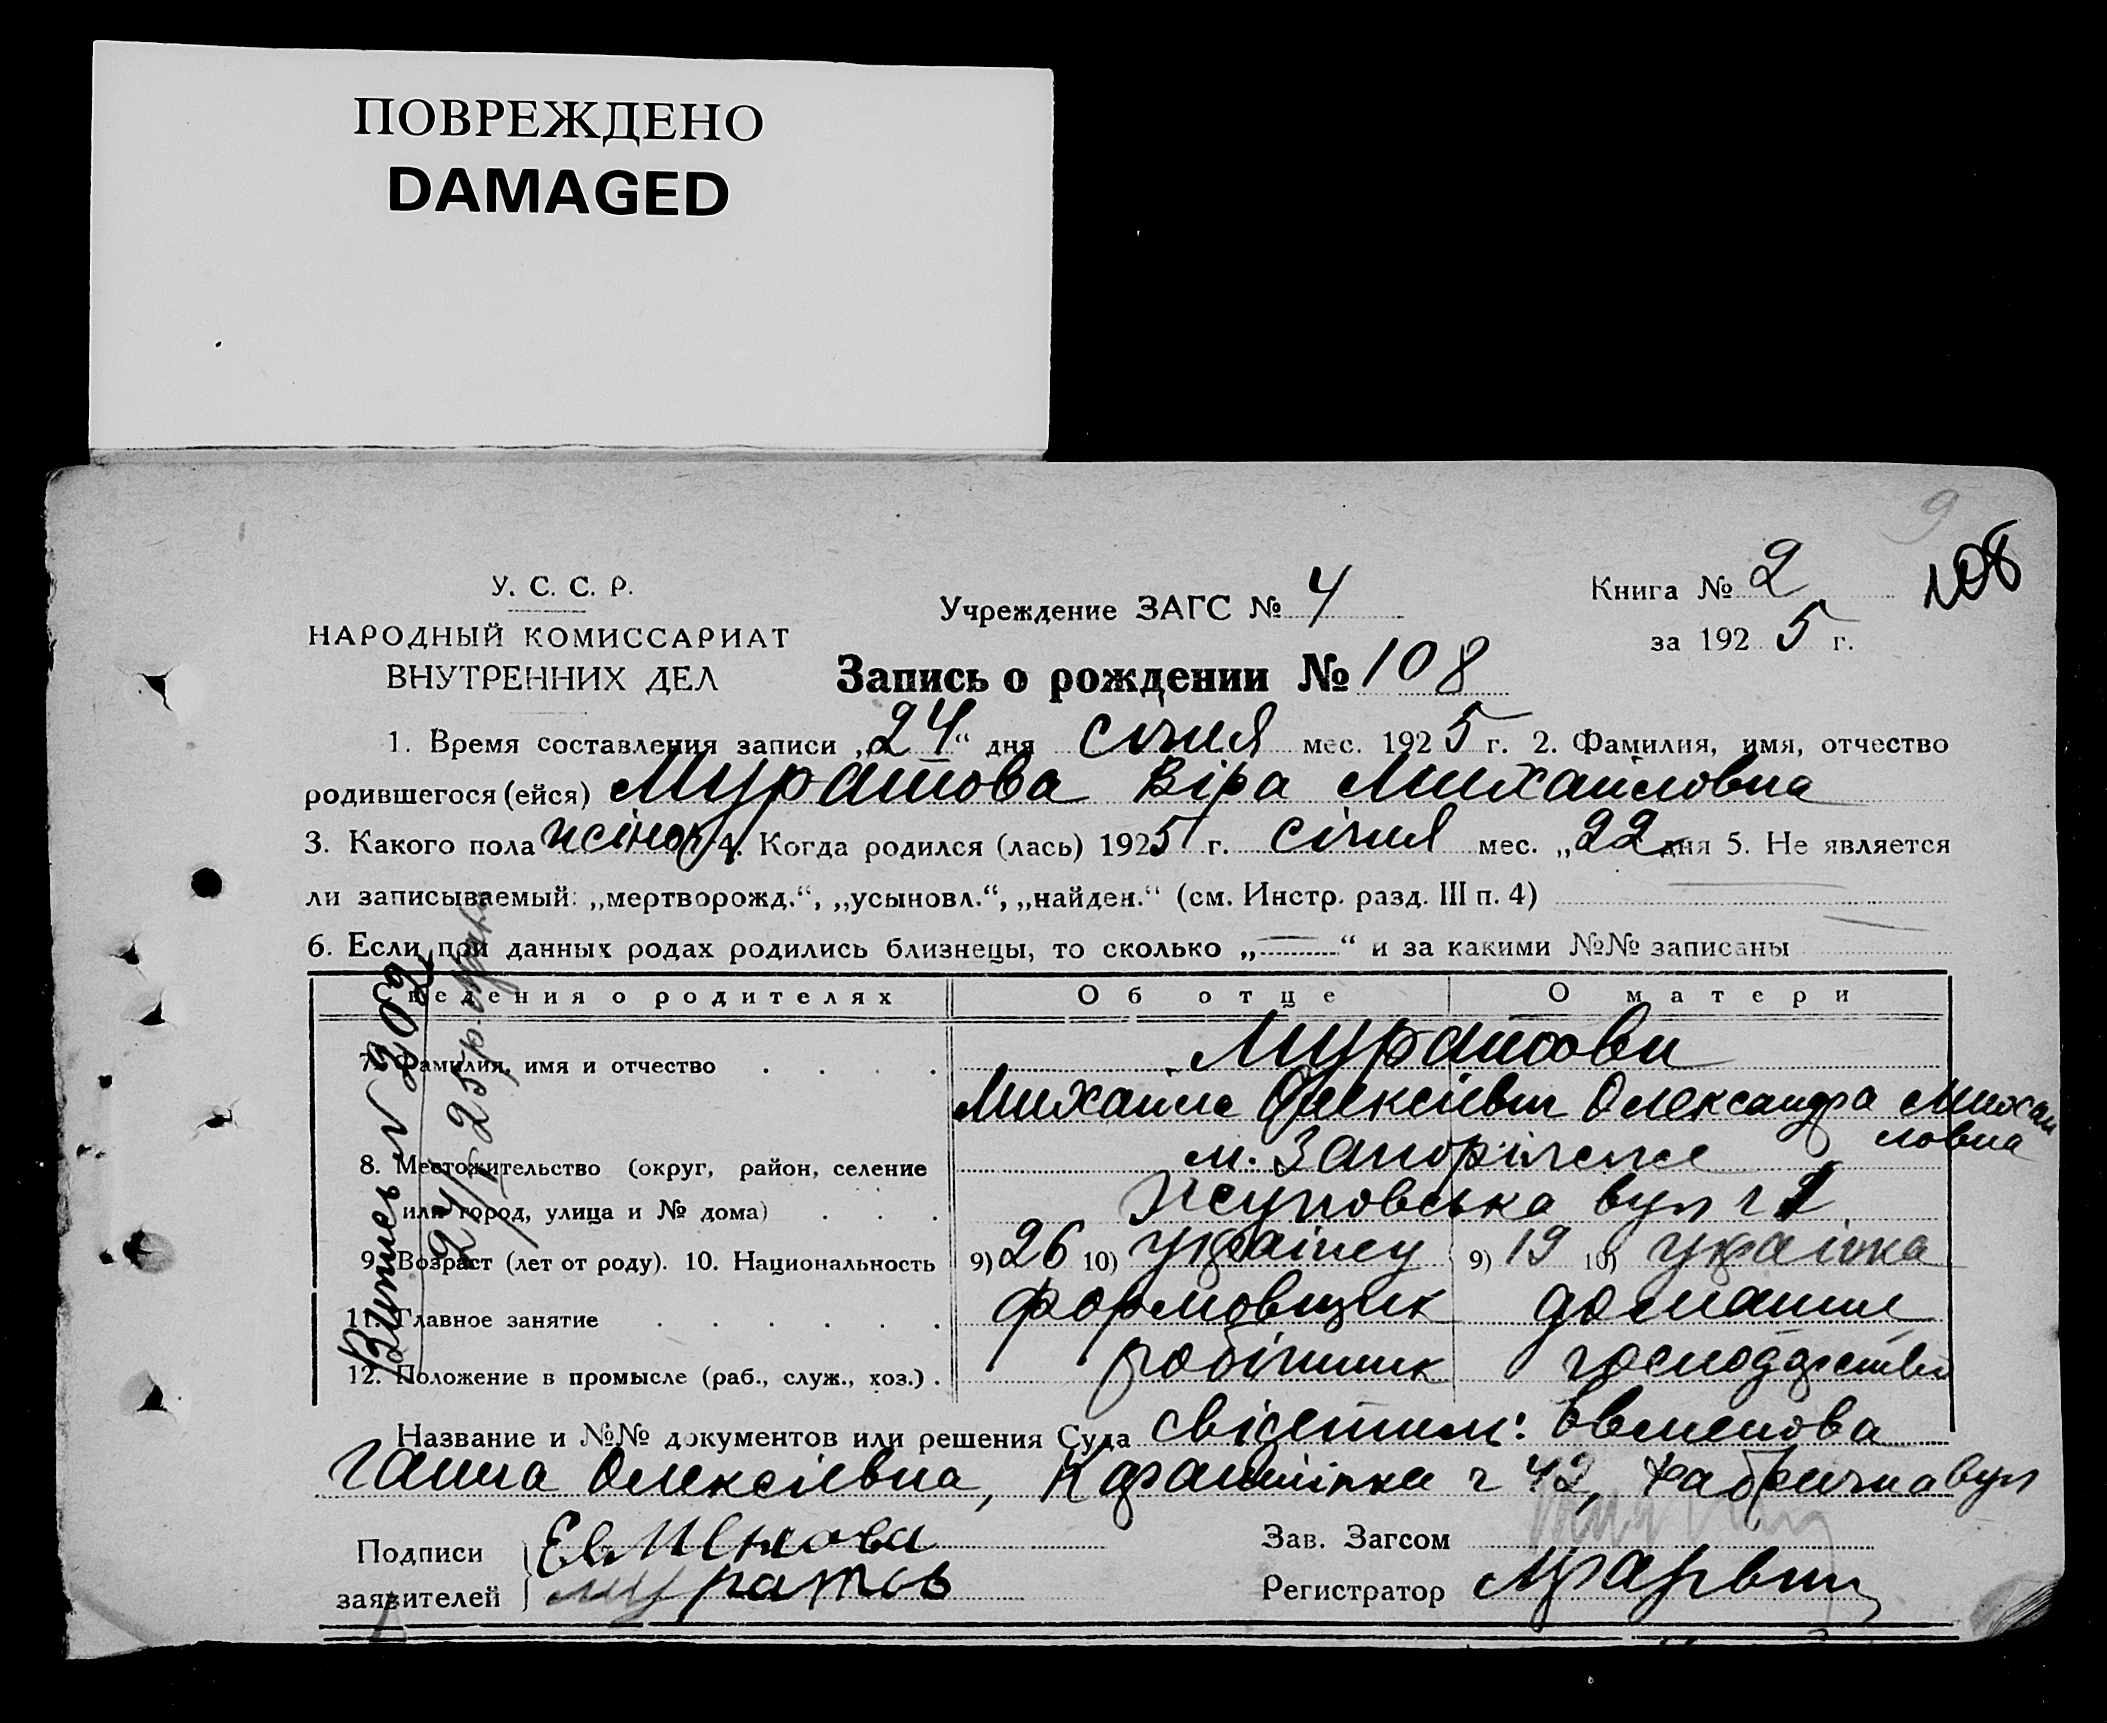 ПОВРЕЖДЕНО
DAMAGED
9
108
У. С. С. Р.
НАРОДНЫЙ КОМИССАРИАТ
ВНУТРЕННИХ ДЕЛ
Учреждение ЗАГС № 4
Книга № 2
за 1925 г.
Запись о рождении № 108
1. Время составления записи „24“ дня січня мес. 1925 г. 2. Фамилия, имя, отчество
родившегося (ейся) Муратова Віра Михайловна
3. Какого пола жіноч 4. Когда родился (лась) 1925 г. січня мес. „22 дня 5. Не является
ли записываемый: „мертворожд.“, „усыновл.“, „найден.“ (см. Инстр. разд. III п. 4)
6. Если при данных родах родились близнецы, то сколько „—“ и за какими №№ записаны
ведения о родителях Об отце О матери
7. Фамилия, имя и отчество Муратови
Михаил Олексієвич Олександра Михаи
ловна
8. Местожительство (округ, район, селение м. Запоріжже
или город, улица и № дома) вул ч
9. Возраст (лет от роду). 10. Национальность 9) 26 10) українец 9) 19 10) українка
11. Главное занятие формовщик домашне
12. Положение в промысле (раб., служ., хоз.) робітник господарство
Название и №№ документов или решения Суда свідетель: Овменова
Ганна Олексієвна, ч 42, Фабрична вул
Подписи Евменова
заявителей Муратов
Зав. Загсом
Регистратор
Випись № 202
24/I 25 р.